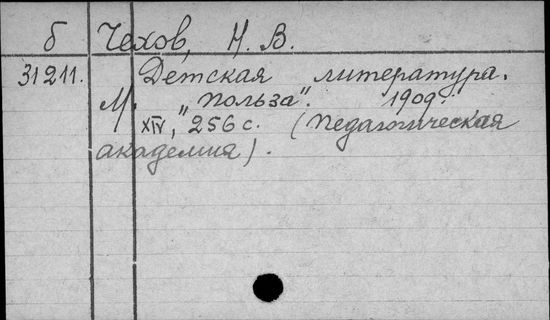 б Чехов, Н. В.
31211. Детская литература.
М. "Польза". 1909.
XIV, 256 с. (Педагогическая
академия).